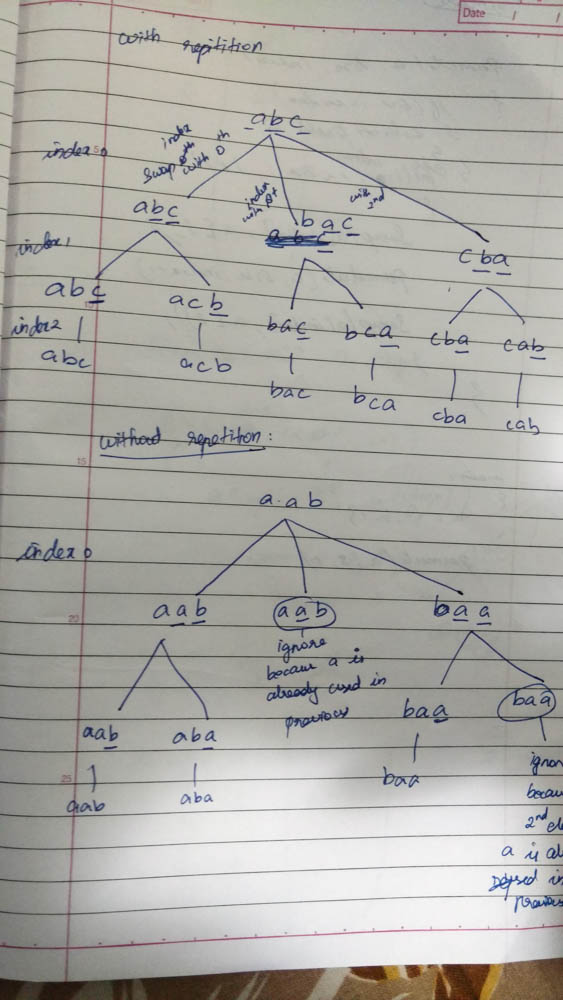 Date
with repitition
abc
index 0
index
Swap 0th with 0th
index
with
with 2nd
abc
bac
cba
index 1
abc
acb
bac
bca
cba
cab
index 2
abc
acb
bac
bca
cba
cab
without repetition:
15
a a b
index 0
20
aab
aab
baa
ignore
becaue a is
already used in
previous
aab
aba
baa
baa
25
aab
aba
baa
ignor
becau
2nd el
a is al
used in
previous